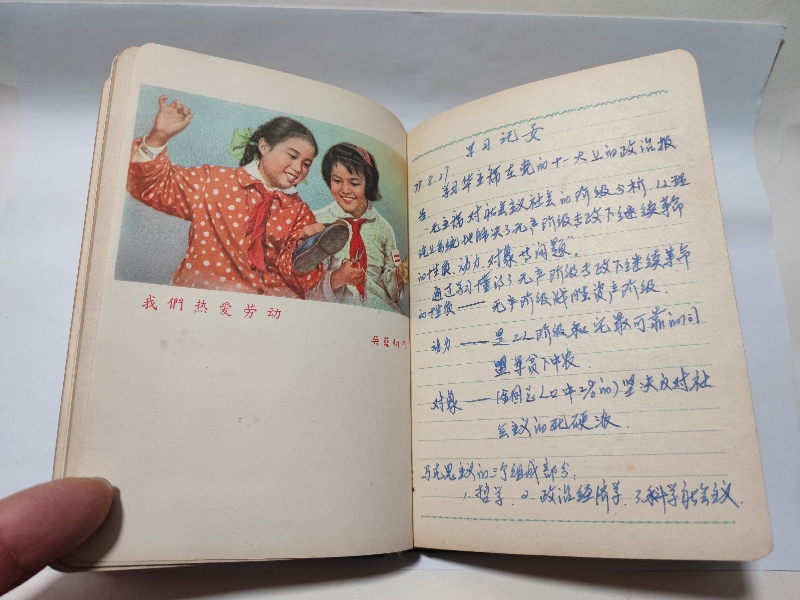 我們热爱劳动
学习记要
77.8.27
学习华主席在党的十一大上的政治报
告"毛主席对社会主义社会的阶级分析,从理
论上系统地解决了无产阶级专政下继续革命
的性质、动力、对象等问题"
通过学习懂得了无产阶级专政下继续革命
的性质——无产阶级战胜资产阶级
动力——是工人阶级和它最可靠的同
盟军贫下中农
对象——(全国总人口中2%的)坚决反对社
会主义的死硬派
马克思主义的三个组成部分:
1.哲学 2.政治经济学 3.科学社会主义.